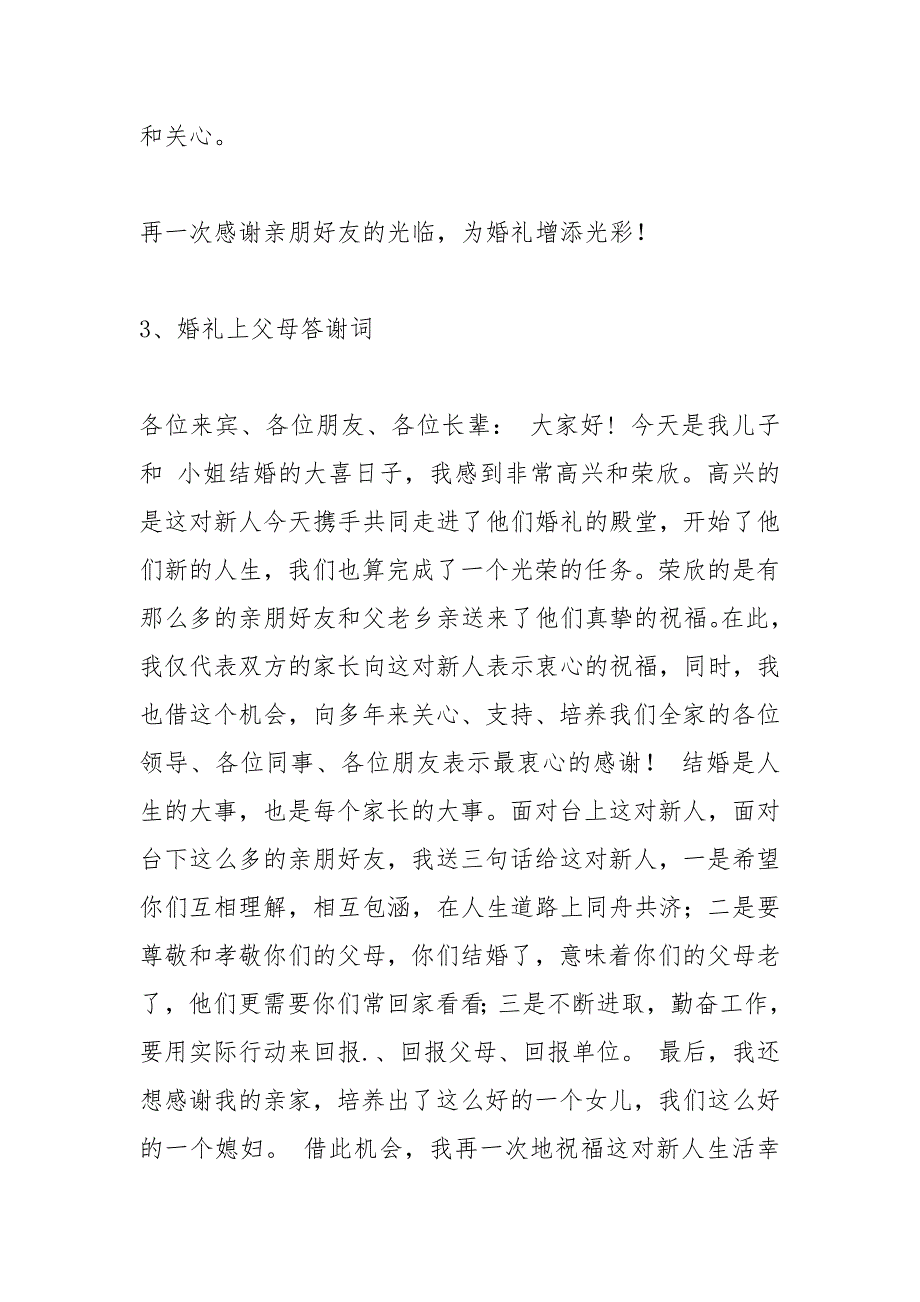 和关心。
再一次感谢亲朋好友的光临，为婚礼增添光彩！
3、婚礼上父母答谢词
各位来宾、各位朋友、各位长辈： 大家好! 今天是我儿子
和 小姐结婚的大喜日子，我感到非常高兴和荣欣。高兴的
是这对新人今天携手共同走进了他们婚礼的殿堂，开始了他
们新的人生，我们也算完成了一个光荣的任务。荣欣的是有
那么多的亲朋好友和父老乡亲送来了他们真挚的祝福。在此，
我仅代表双方的家长向这对新人表示衷心的祝福，同时，我
也借这个机会，向多年来关心、支持、培养我们全家的各位
领导、各位同事、各位朋友表示最衷心的感谢！ 结婚是人
生的大事，也是每个家长的大事。面对台上这对新人，面对
台下这么多的亲朋好友，我送三句话给这对新人，一是希望
你们互相理解，相互包涵，在人生道路上同舟共济；二是要
尊敬和孝敬你们的父母，你们结婚了，意味着你们的父母老
了，他们更需要你们常回家看看；三是不断进取，勤奋工作，
要用实际行动来回报.、回报父母、回报单位。 最后，我还
想感谢我的亲家，培养出了这么好的一个女儿，我们这么好
的一个媳妇。 借此机会，我再一次地祝福这对新人生活幸